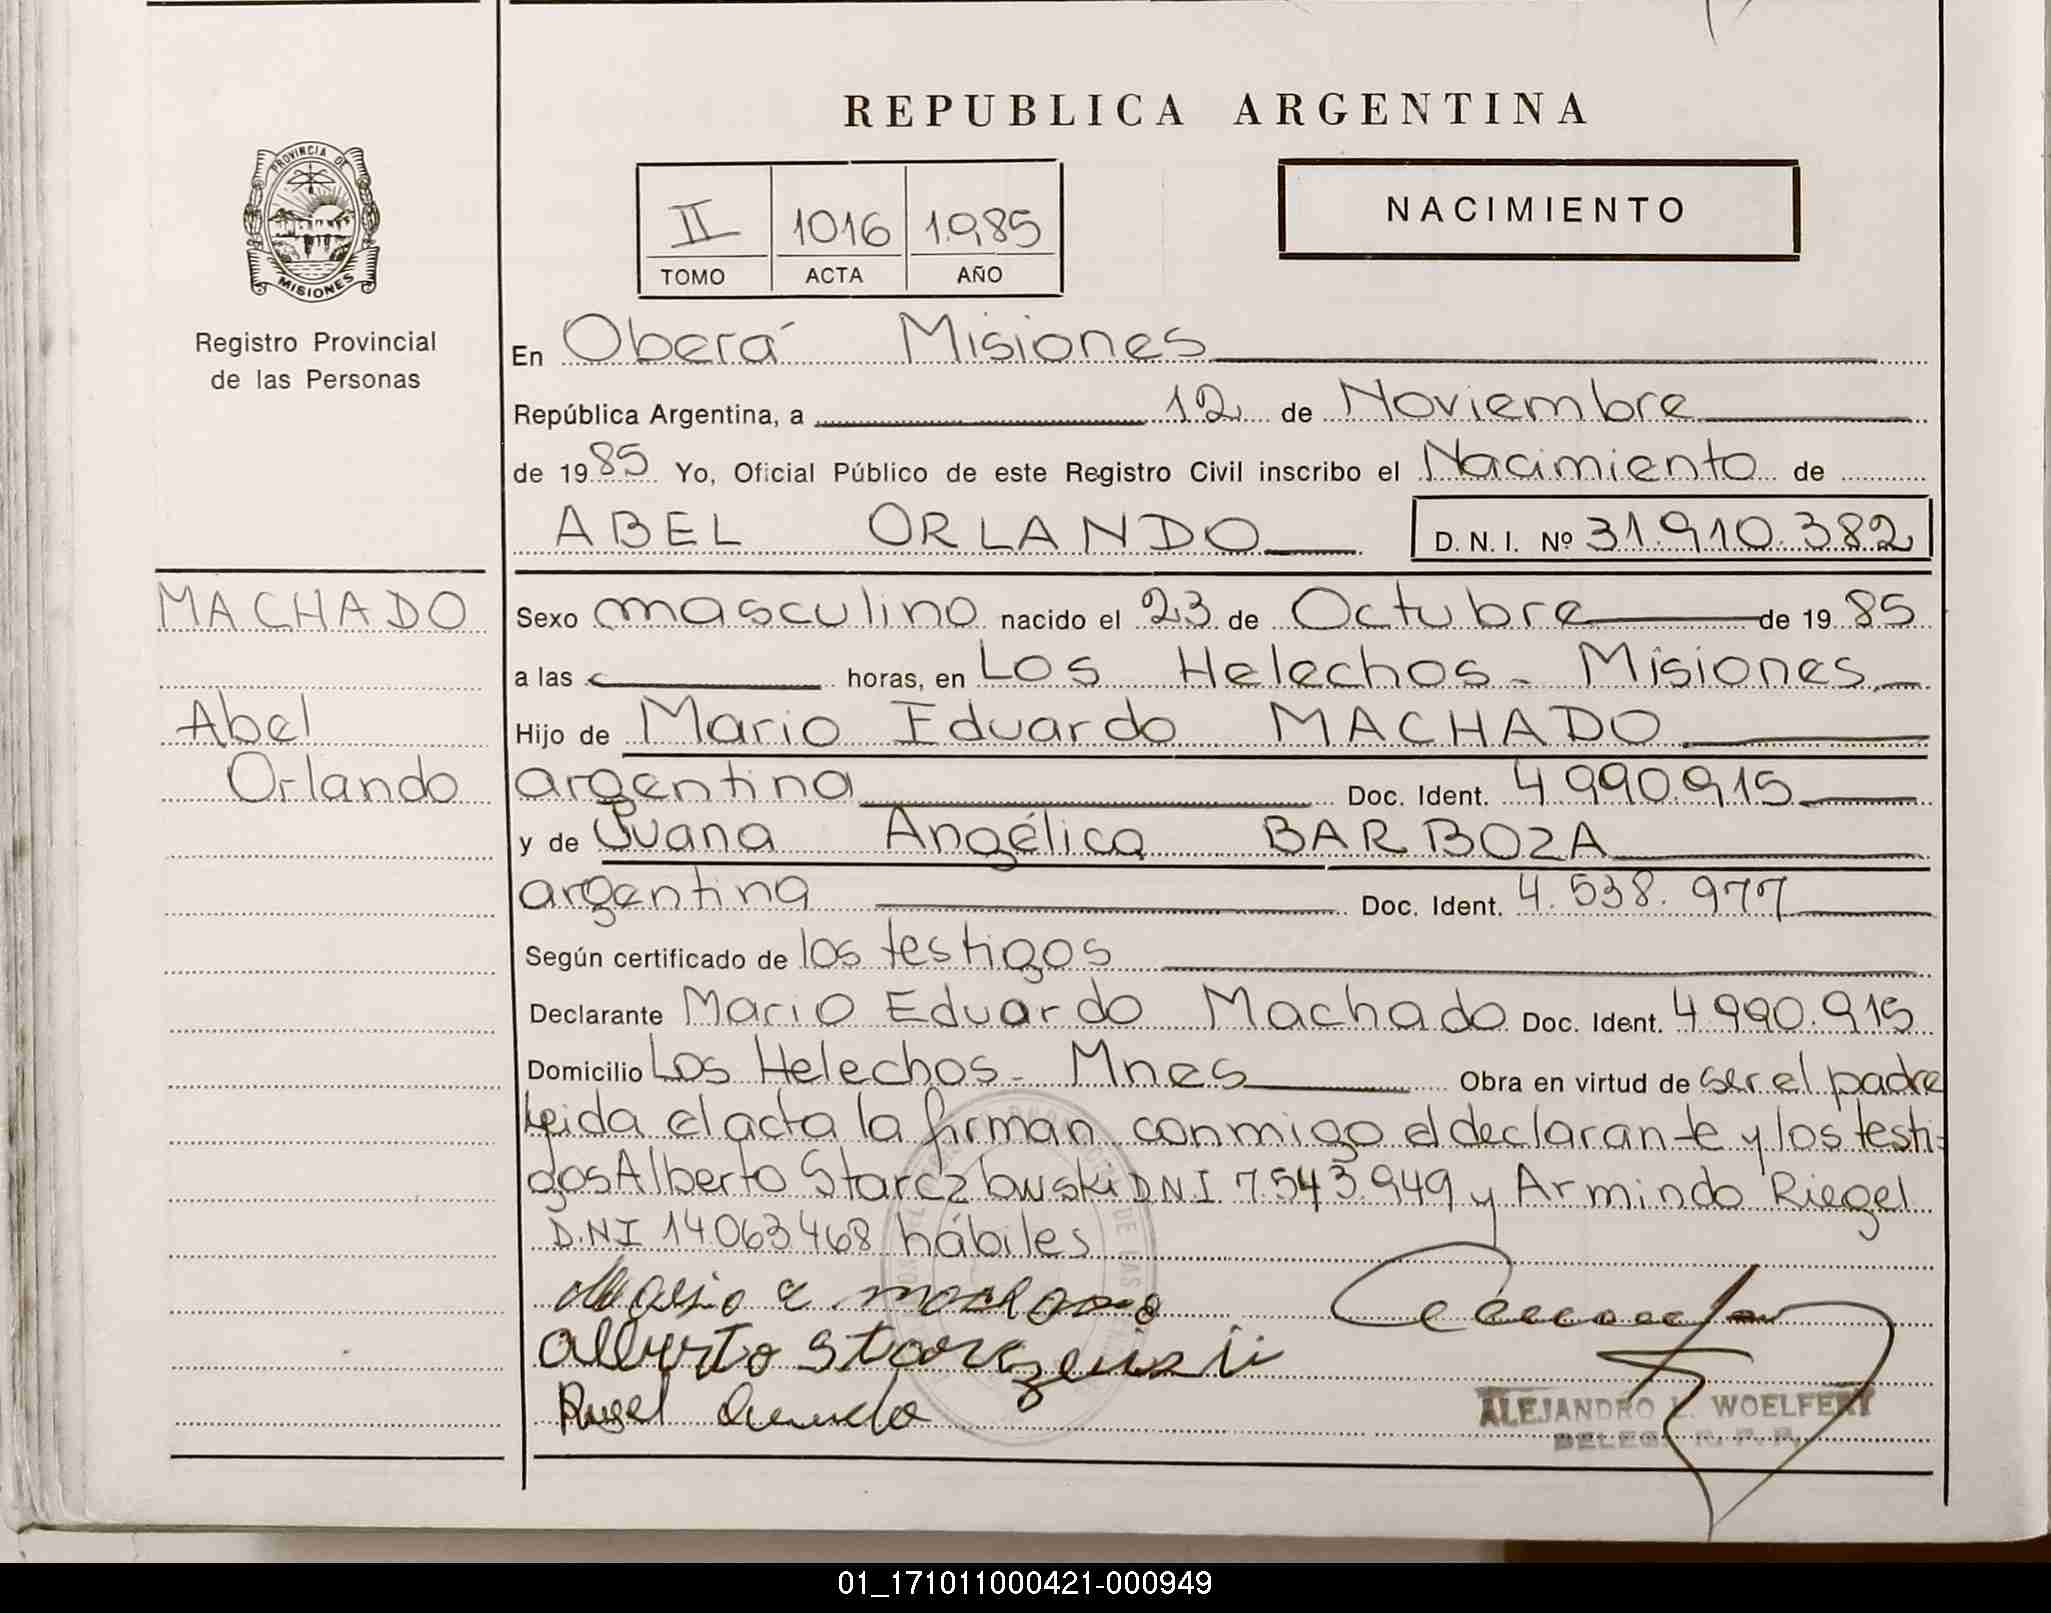 REPUBLICA ARGENTINA
PROVINCIA DE
MISIONES
Registro Provincial
de las Personas
II 1016 1.985
TOMO ACTA AÑO
NACIMIENTO
En Oberá Misiones
República Argentina, a 12 de Noviembre
de 1985 Yo, Oficial Público de este Registro Civil inscribo el Nacimiento de
ABEL ORLANDO D. N. I. Nº 31.910.382
MACHADO
Abel
Orlando
Sexo masculino nacido el 23 de Octubre de 1985
a las horas, en Los Helechos - Misiones
Hijo de Mario Eduardo MACHADO
argentina Doc. Ident. 4.990.915
y de Juana Angélica BARBOZA
argentina Doc. Ident. 4.538.977
Según certificado de los testigos
Declarante Mario Eduardo Machado Doc. Ident. 4.990.915
Domicilio Los Helechos - Mnes Obra en virtud de ser el padre
leida el acta la firman conmigo el declarante y los testi-
gos Alberto Starczewski DNI 7.543.949 y Armindo Riegel
D.N.I 14063468 hábiles
Mario E Machado
Alberto
ALEJANDRO L. WOELFERT
DELEG. R. P. P.
01_171011000421-000949